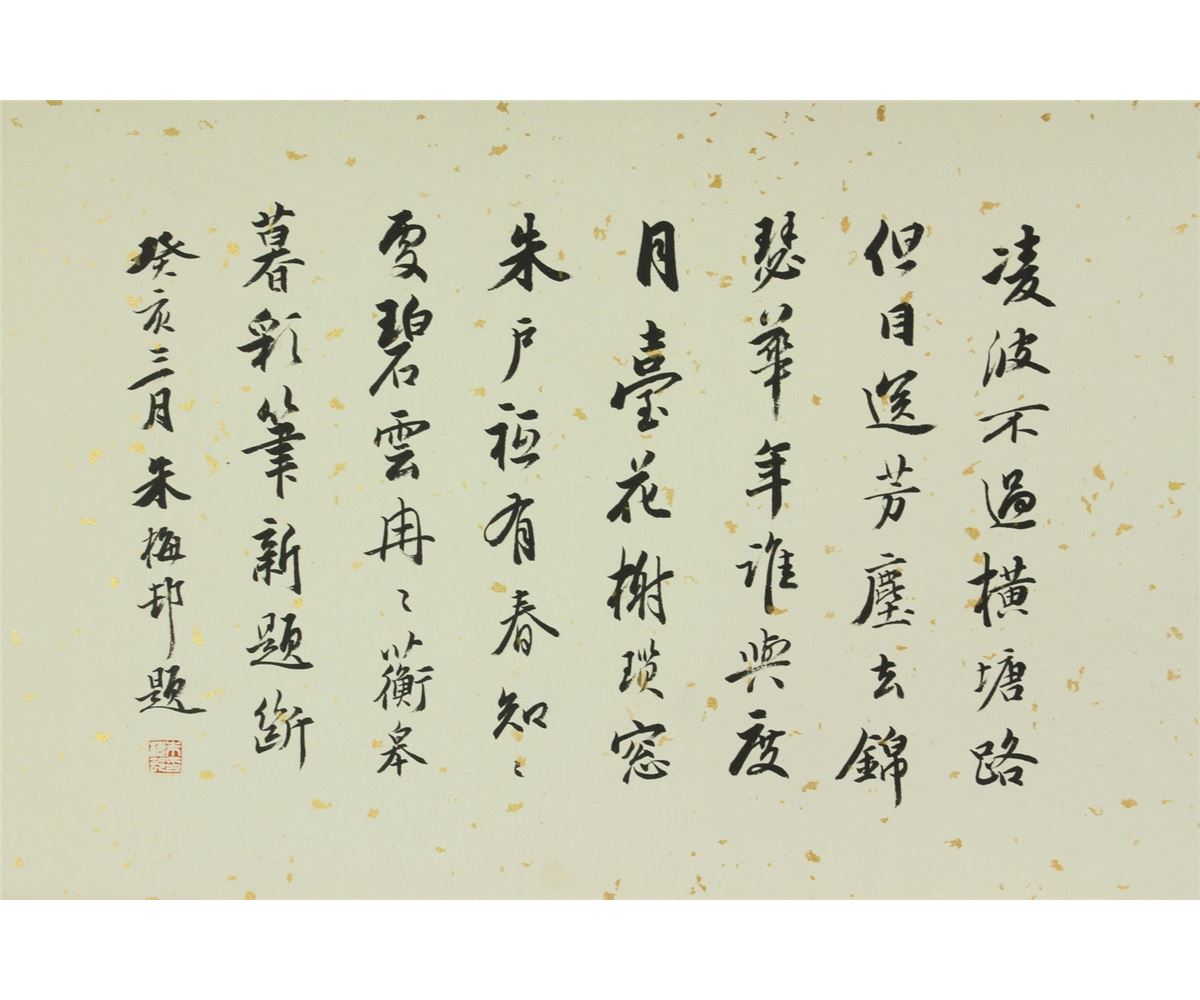 凌波不過橫塘路
但目送芳塵去錦
瑟華年誰與度
月臺花榭瑣窓
朱戶祗有春知〻
處碧雲冉〻蘅皋
暮彩筆新題斷
癸亥三月朱梅邨題